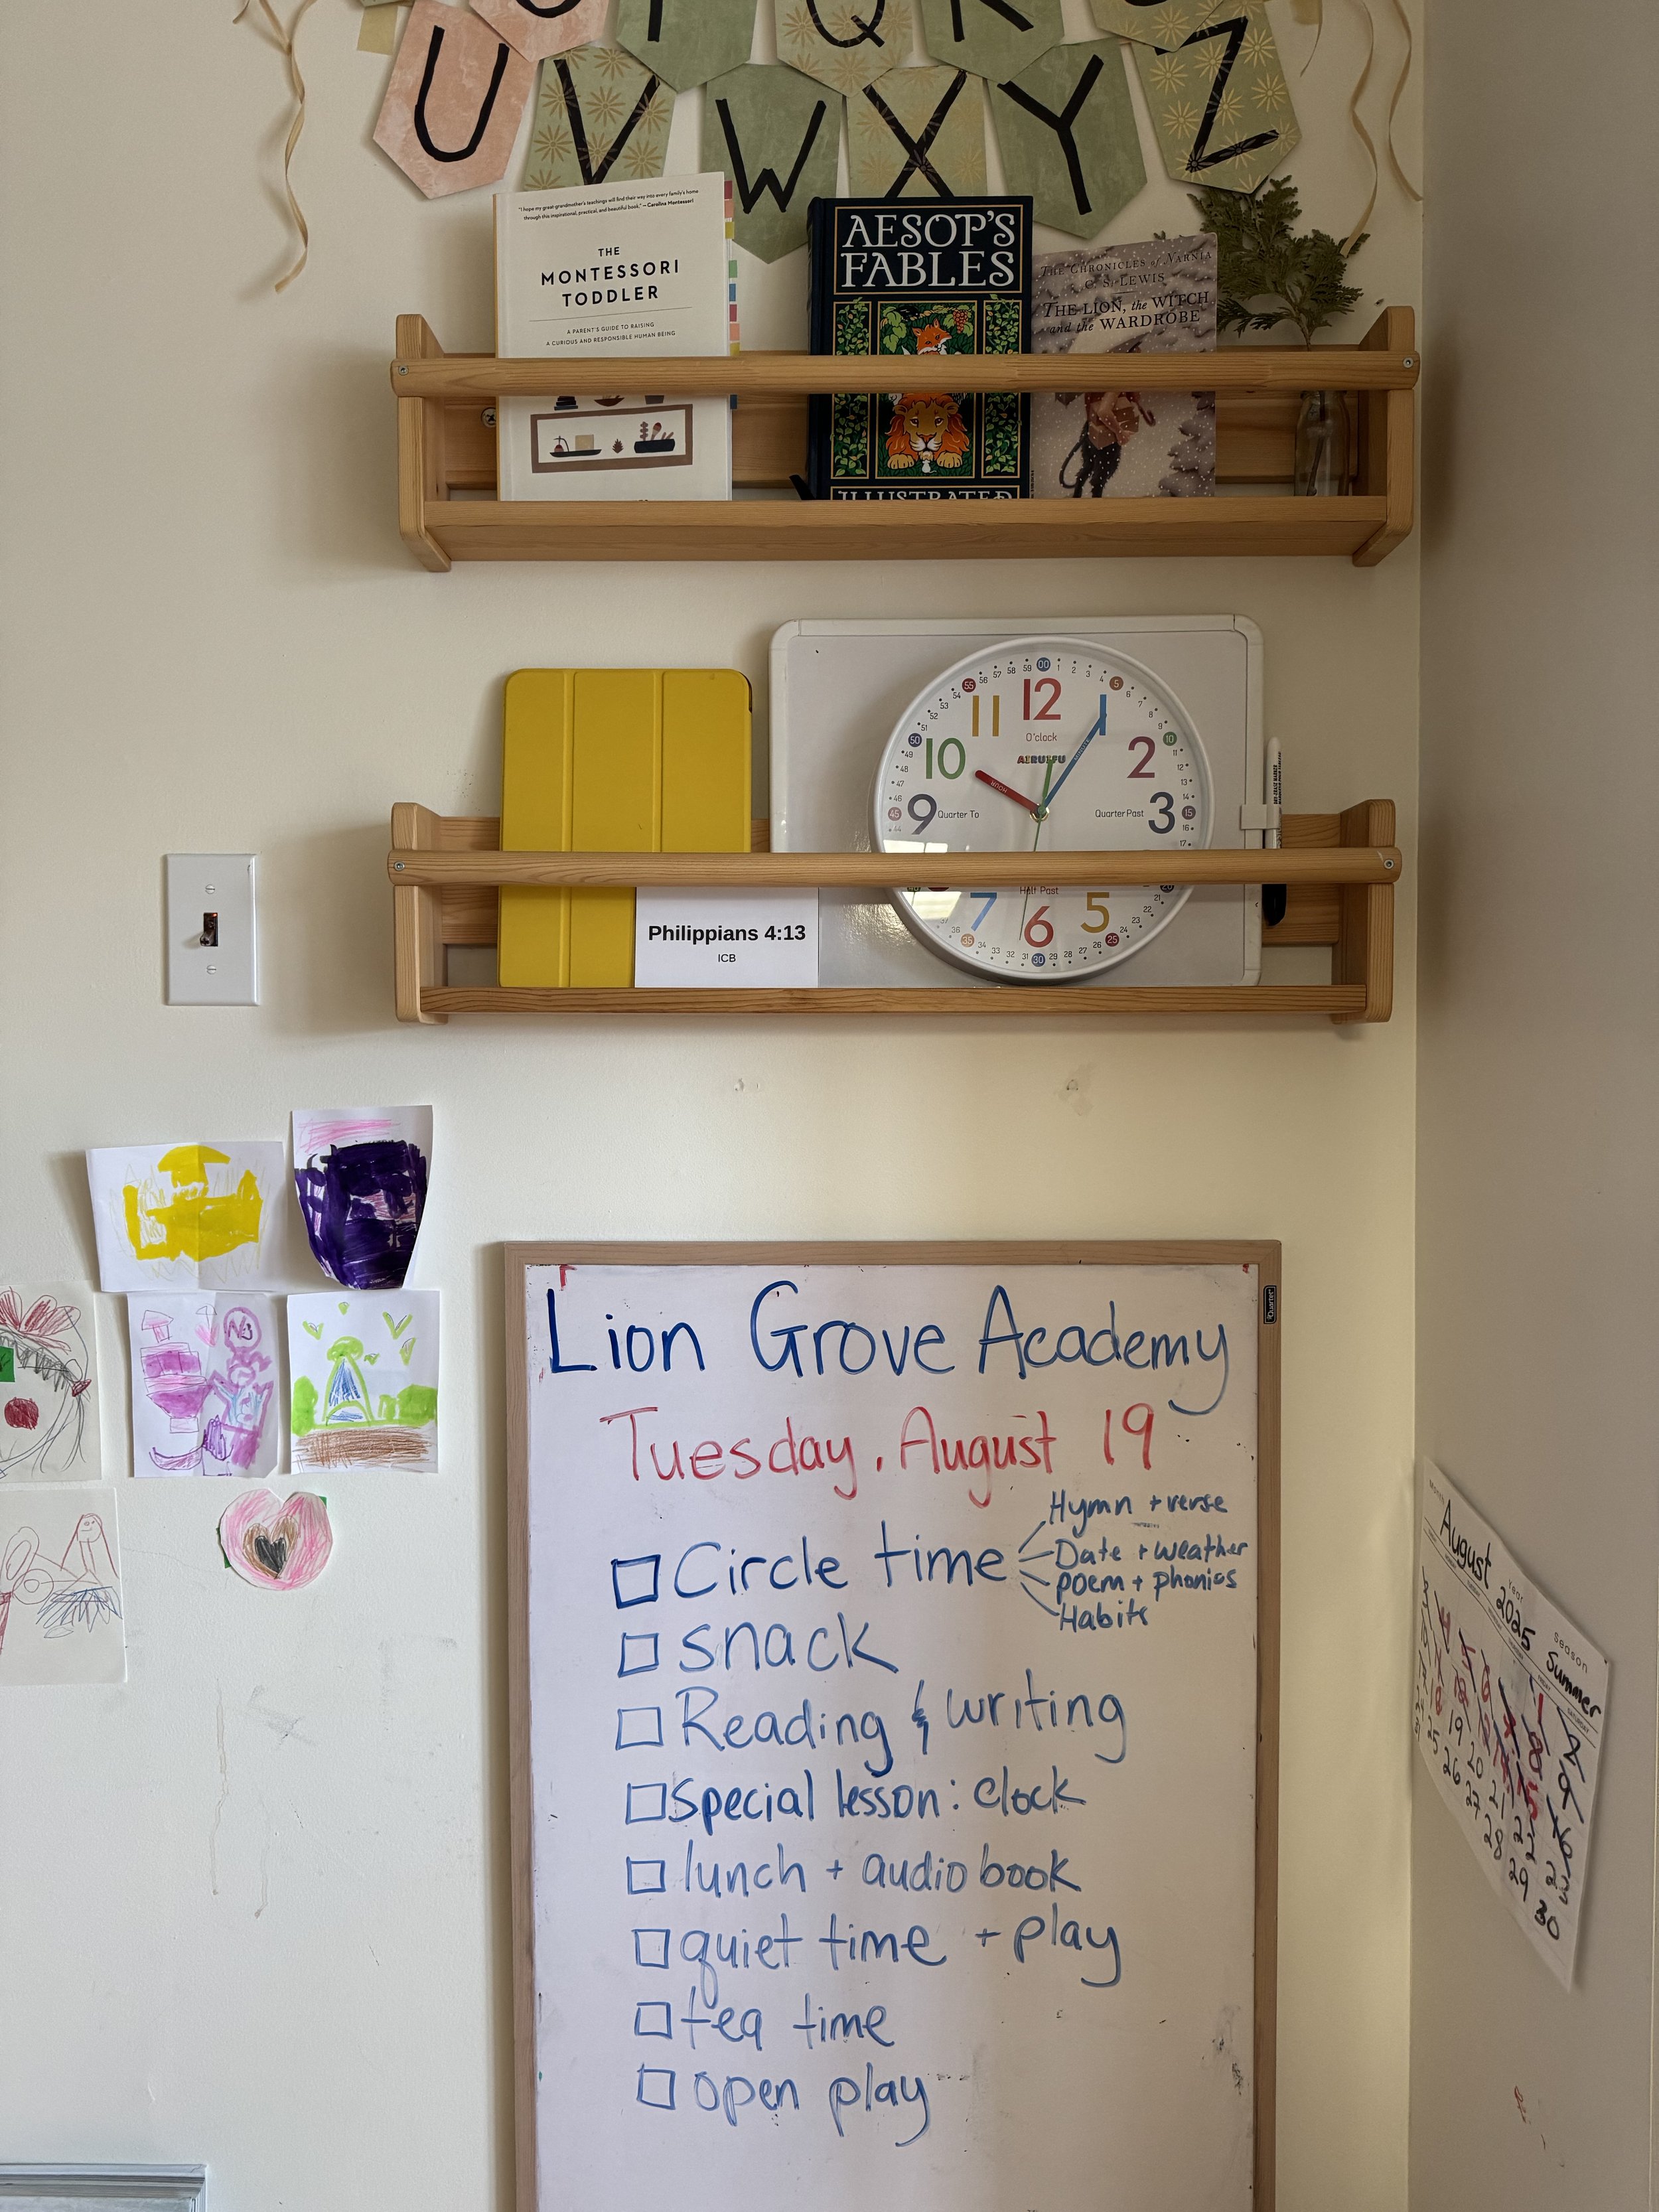 U V W X Y Z
"I hope my great-grandmother's teachings will find their way into every family's home
through this inspirational, practical, and beautiful book." — Carolina Montessori
THE
MONTESSORI
TODDLER
A PARENT'S GUIDE TO RAISING
A CURIOUS AND RESPONSIBLE HUMAN BEING
AESOP'S
FABLES
ILLUSTRATED
THE CHRONICLES of NARNIA
C. S. LEWIS
THE LION, the WITCH
and the WARDROBE
12
O'clock
AIRUSFU
11 1
10 2
9 Quarter To Quarter Past 3
Half Past
7 6 5
HOUR
MINUTE
Philippians 4:13
ICB
Quartet
Lion Grove Academy
Tuesday, August 19
Circle time
Hymn + verse
Date + weather
poem + phonics
Habits
snack
Reading & writing
special lesson: clock
lunch + audio book
quiet time + play
tea time
open play
Month August Year 2025 Season Summer
SATURDAY
19 20 21 22
25 26 27 28 29 30